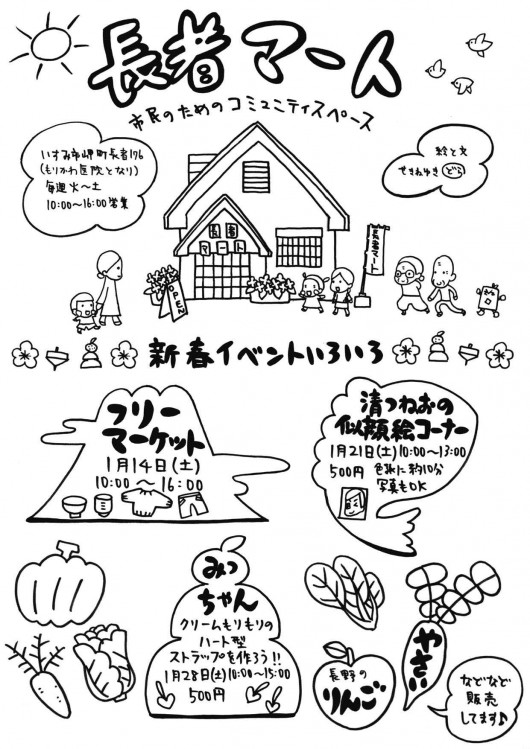 長者マート
市民のためのコミュニティスペース
いすみ市岬町長者176
(もりかわ医院となり)
毎週火〜土
10:00〜16:00営業
絵と文
せきねゆき
長者
マート
長者マート
OPEN
新春イベントいろいろ
フリー
マーケット
1月14日(土)
10:00〜16:00
清つねおの
似顔絵コーナー
1月21日(土)10:00〜13:00
500円 色紙に約10分
写真もOK
みっ
ちゃん
クリームもりもりの
ハート型
ストラップを作ろう!!
1月28日(土)10:00〜15:00
500円
長野の
りんご
やさい
などなど
販売
してます♪